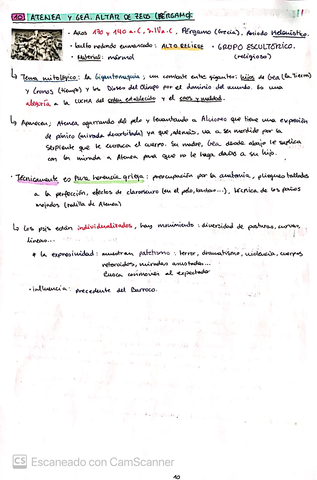 10 ATENEA Y GEA. ALTAR DE ZEUS (PÉRGAMO):
· Años 170 y 140 a.C, s.II a.C, Pérgamo (Grecia), Periodo Helenístico
· bulto redondo enmarcado: ALTO RELIEVE · GRUPO ESCULTÓRICO.
· Material: mármol (religioso)
↳ Tema mitológico: la gigantomaquia; un combate entre gigantes: hijos de Gea (la tierra)
y Cronos (tiempo) y los Dioses del Olimpo por el dominio del mundo. Es una
alegoría a la LUCHA del orden establecido y el caos y maldad.
↳ Aparecen; Atenea agarrando del pelo y levantando a Alcioneo que tiene una expresión
de pánico (mirada desorbitada) ya que, además, va a ser mordido por la
serpiente que le enrosca el cuerpo. Su madre, Gea desde abajo le suplica
con la mirada a Atenea para que no le haga daños a su hijo.
· Técnicamente es pura herencia griega: preocupación por la anatomía, pliegues tallados
a la perfección, efectos de claroscuro (en el pelo, barbas...), técnica de los paños
mojados (rodilla de Atenea)
↳ Los psjs están individualizados, hay movimiento: diversidad de posturas, curvas,
líneas...
* la expresividad: muestran patetismo: terror, dramatismo, violencia, cuerpos
retorcidos, miradas asustadas...
Busca conmover al espectador
· influencia: precedente del Barroco.
CS Escaneado con CamScanner
10